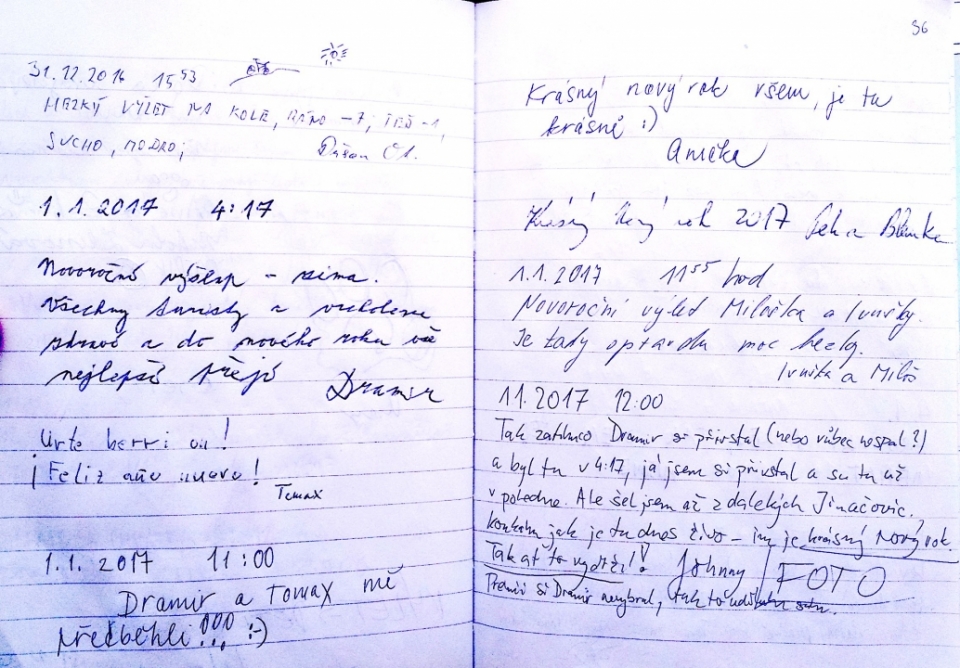 31.12.2016 15 53
HEZKÝ VÝLET NA KOLE, RÁNO -7, TEĎ -1,
SUCHO, MODRO;
1.1.2017 4:17
Novoroční výšlap - zima.
Všechny turisty a
zdraví a do nového roku vše
nejlepší přeje Dramir
Urte berri on!
¡Feliz año nuevo!
Tomax
1.1.2017 11:00
Dramir a Tomax mě
předběhli!!! :-)
36
Krásný nový rok všem, je tu
krásně :)
Anička
Krásný Nový rok 2017 a Blanka
1.1.2017 11 55 hod
Novoroční výlet Miloška a Ivušky.
Je tady opravdu moc hezky.
a Miloš
1.1.2017 12:00
Tak zatímco Dramir si přivstal (nebo vůbec nespal?)
a byl tu v 4:17, já jsem si přivstal a su tu už
v poledne. Ale šel jsem až z dalekých Jinačovic.
Koukám jak je tu dnes živo - je krásný Nový rok.
Tak ať to vydrží! Johnny FOTO
si Dramir nevybral, tak to